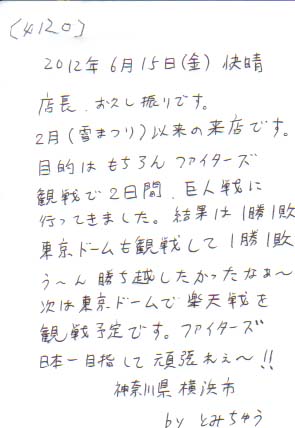 (4120)
2012年6月15日(金) 快晴
店長、お久し振りです。
2月(雪まつり)以来の来店です。
目的はもちろんファイターズ
観戦で2日間、巨人戦に
行ってきました。結果は1勝1敗
東京ドームも観戦して1勝1敗
う〜ん勝ち越したかったなぁ〜
次は東京ドームで楽天戦を
観戦予定です。ファイターズ
日本一目指して頑張れぇ〜!!
神奈川県横浜市
by とみちゅう